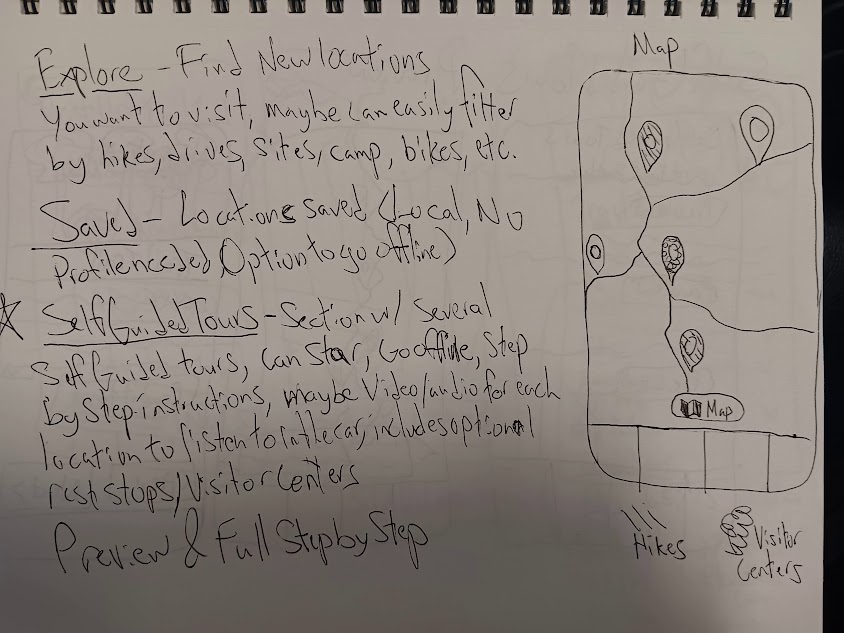 Explore - Find New locations
You want to visit, maybe can easily filter
by hikes, drives, sites, camp, bikes, etc.
Saved - Locations saved (Local, No
Profile needed, Option to go offline)
Self Guided Tours - Section w/ several
Self Guided tours, can star, Go offline, Step
by Step instructions, maybe Video/audio for each
location to listen to in the car, includes optional
rest stops/Visitor Centers
Preview & Full Step by Step
Map
Map
Hikes
Visitor
Centers